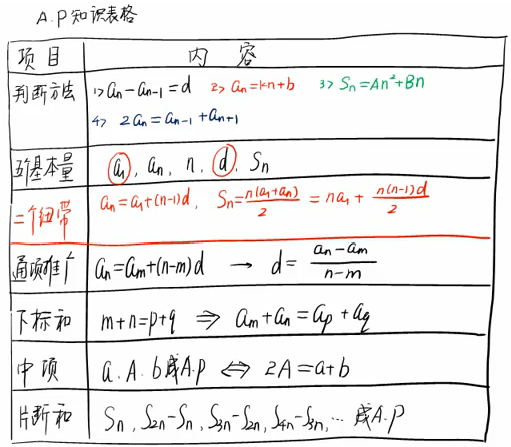 A.P知识表格
项目 内容
判断方法 1> aₙ-aₙ₋₁=d 2> aₙ=kn+b 3> Sₙ=An²+Bn
4> 2aₙ=aₙ₋₁+aₙ₊₁
五个基本量 a₁, aₙ, n, d, Sₙ
二个纽带 aₙ=a₁+(n-1)d, Sₙ=n(a₁+aₙ)/2=na₁+n(n-1)d/2
通项推广 aₙ=aₘ+(n-m)d → d=(aₙ-aₘ)/(n-m)
下标和 m+n=p+q ⇒ aₘ+aₙ=aₚ+a_q
中项 a.A.b成A.P ⇔ 2A=a+b
片断和 Sₙ, S₂ₙ-Sₙ, S₃ₙ-S₂ₙ, S₄ₙ-S₃ₙ, … 成A.P